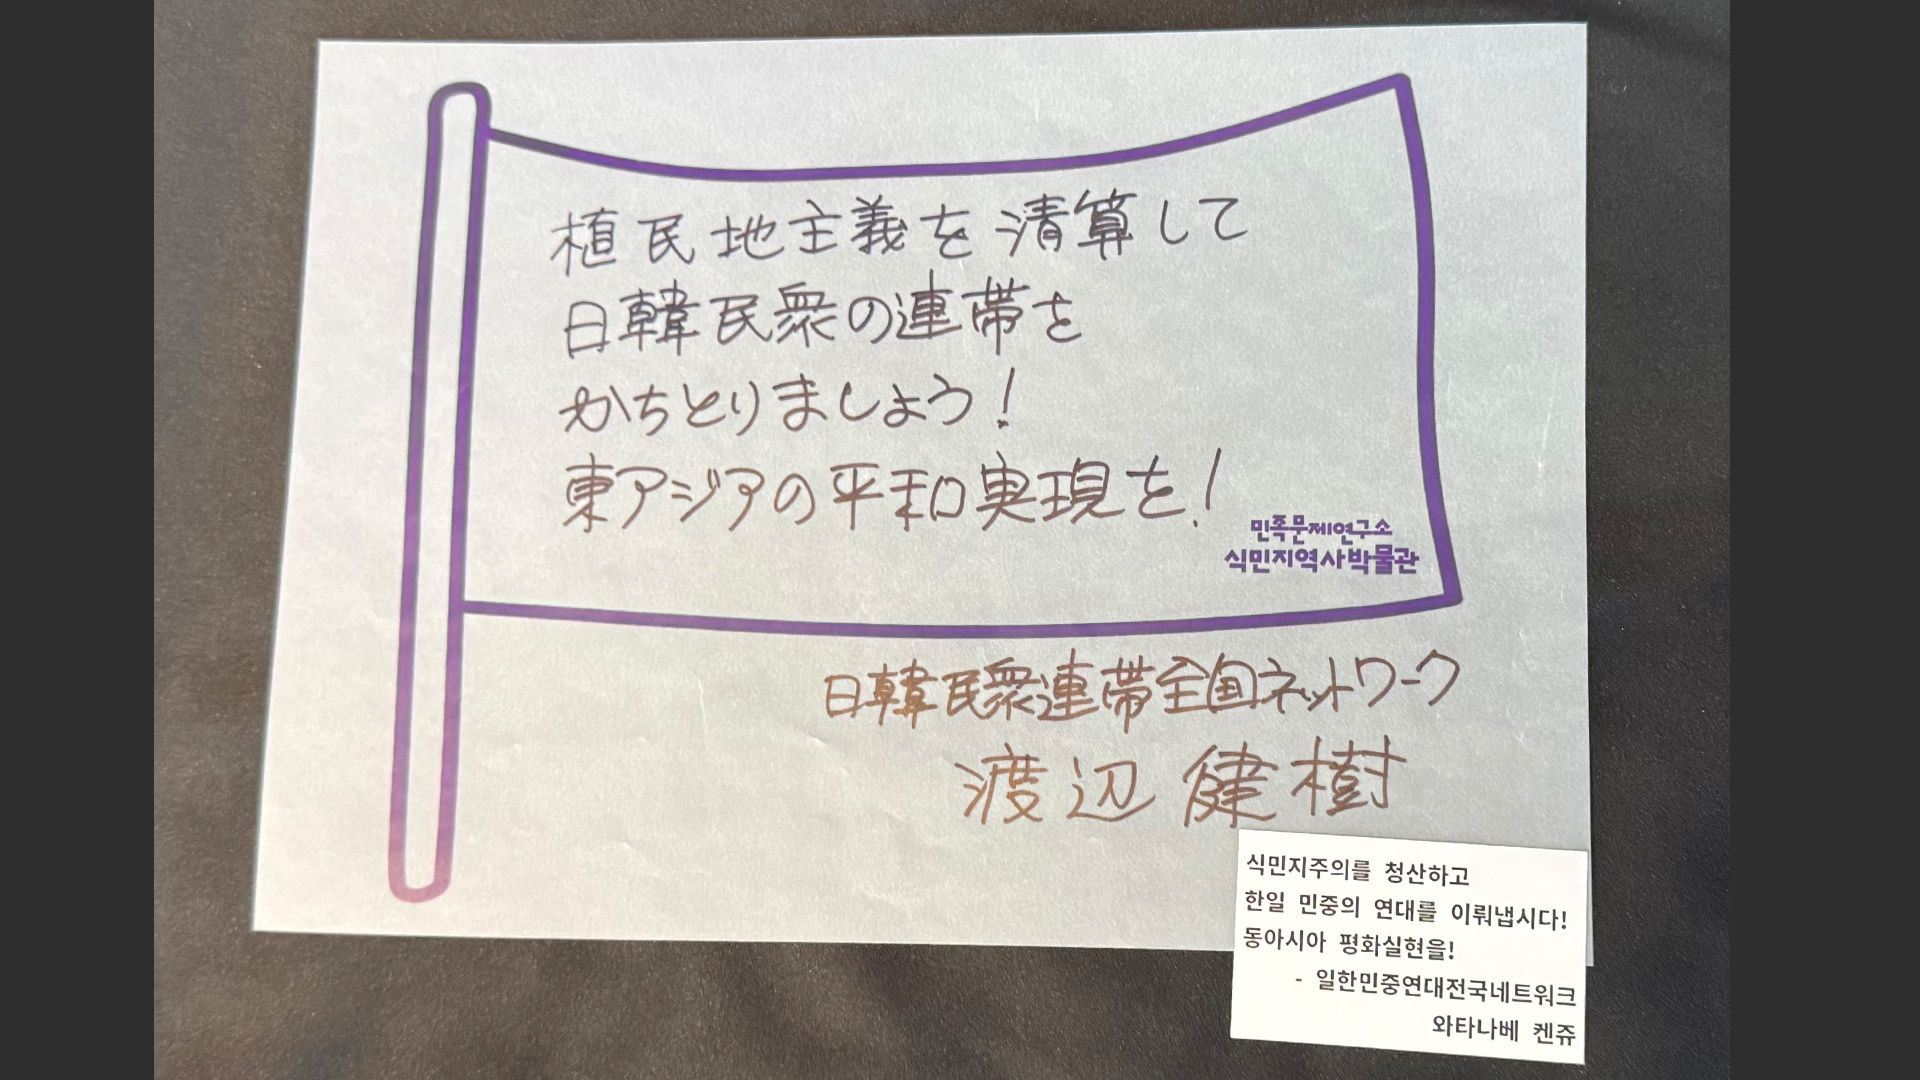 植民地主義を清算して
日韓民衆の連帯を
かちとりましょう!
東アジアの平和実現を!
민족문제연구소
식민지역사박물관
日韓民衆連帯全国ネットワーク
渡辺健樹
식민지주의를 청산하고
한일 민중의 연대를 이뤄냅시다!
동아시아 평화실현을!
- 일한민중연대전국네트워크
와타나베 켄쥬